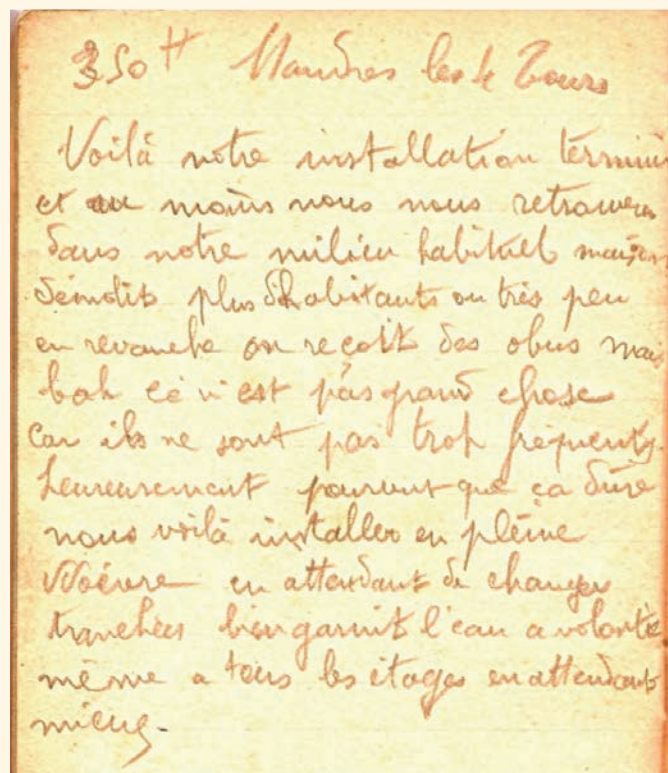 350 H Mandres les 4 Tours
Voilà notre installation términé
et au moins nous nous retrouvons
dans notre milieu habituel maisons
démolit plus d'habitants ou très peu
en revanche on reçoit des obus mais
bah cé n'est pas grand chose
car ils ne sont pas trop fréquents
heureusement pourvut que ça dure
nous voilà installer en pleine
Woëvre en attendant de changer
tranchées bien garnit l'eau a volonté
même a tous les étages en attendant
mieux.